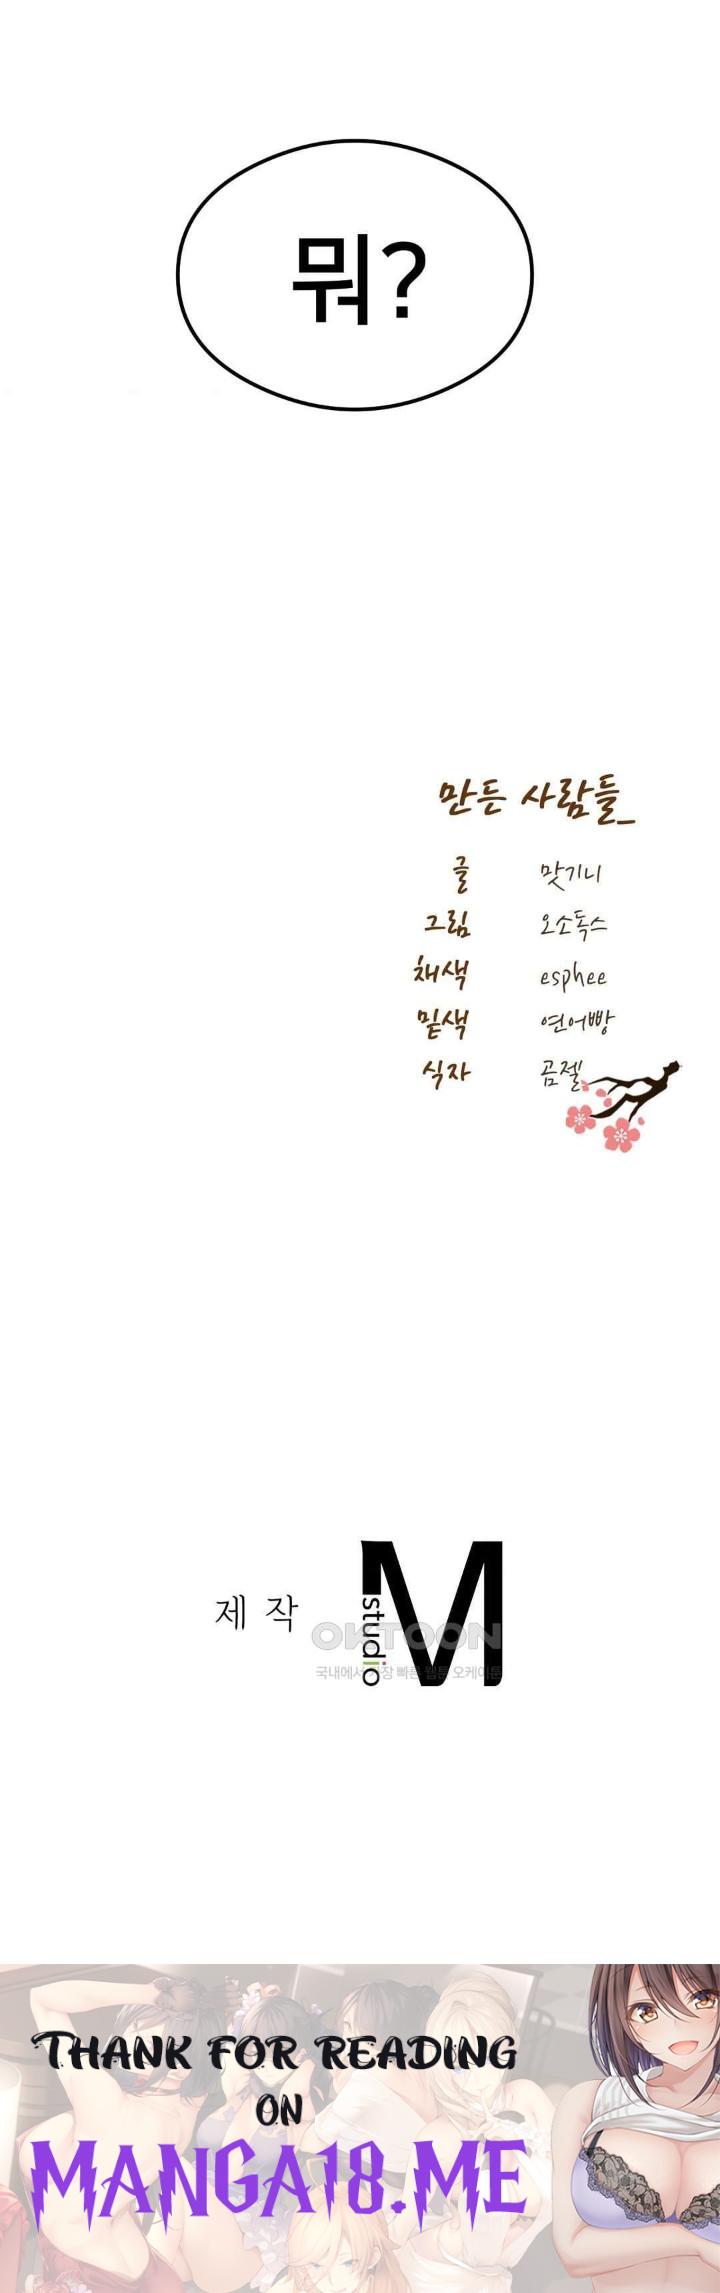 뭐?
만든 사람들_
글 맛기니
그림 오소독스
채색 esphee
밑색 연어빵
식자 곰젤
제작 M studio
OKTOON
국내에서 가장 빠른 웹툰 오케이툰
THANK FOR READING
ON
MANGA18.ME